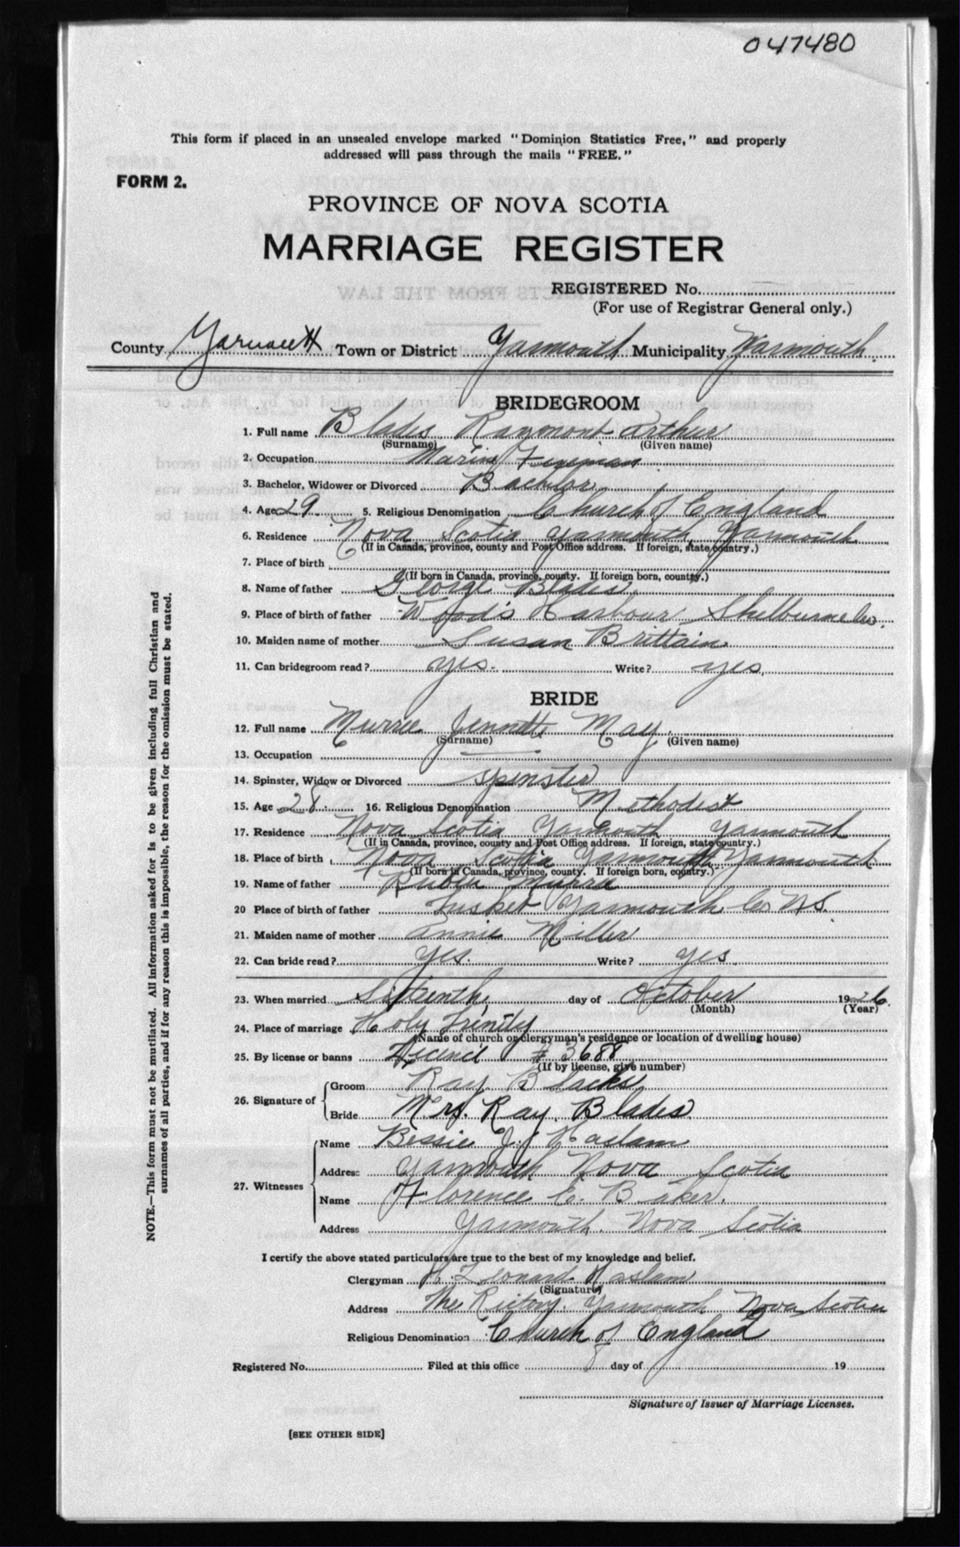 047480
This form if placed in an unsealed envelope marked "Dominion Statistics Free," and properly
addressed will pass through the mails "FREE."
FORM 2.
PROVINCE OF NOVA SCOTIA
MARRIAGE REGISTER
REGISTERED No.
(For use of Registrar General only.)
County Yarmouth Town or District Yarmouth Municipality Yarmouth
BRIDEGROOM
1. Full name Blades Raymont Arthur
(Surname) (Given name)
2. Occupation Marine Fireman
3. Bachelor, Widower or Divorced Bachlor
4. Age 29 5. Religious Denomination Church of England
6. Residence Nova Scotia Yarmouth Yarmouth
(If in Canada, province, county and Post Office address. If foreign, state country.)
7. Place of birth
(If born in Canada, province, county. If foreign born, country.)
8. Name of father George Blades
9. Place of birth of father Wood's Harbour Shelburne Co.
10. Maiden name of mother Susan Brittain
11. Can bridegroom read? yes. Write? yes,
BRIDE
12. Full name Murree Jennett May
(Surname) (Given name)
13. Occupation
14. Spinster, Widow or Divorced spinster
15. Age 28 16. Religious Denomination Methodist
17. Residence Nova Scotia Yarmouth Yarmouth
(If in Canada, province, county and Post Office address. If foreign, state country.)
18. Place of birth Nova Scotia Yarmouth Yarmouth
(If born in Canada, province, county. If foreign born, country.)
19. Name of father
20 Place of birth of father Tusket Yarmouth Co N.S.
21. Maiden name of mother Annie Miller
22. Can bride read? yes. Write? yes.
23. When married day of October 1926.
(Month) (Year)
24. Place of marriage Holy Trinity
(Name of church or clergyman's residence or location of dwelling house)
25. By license or banns # 3688
(If by license, give number)
26. Signature of Groom Ray Blades
Bride Mrs. Ray Blades
27. Witnesses Name Bessie J. Haslam
Address Yarmouth Nova Scotia
Name Florence C. Baker.
Address Yarmouth Nova Scotia
I certify the above stated particulars are true to the best of my knowledge and belief.
Clergyman Leonard Haslam
(Signature)
Address The Rectory. Yarmouth Nova Scotia
Religious Denomination Church of England
Registered No. Filed at this office 8 day of 19
Signature of Issuer of Marriage Licenses.
[SEE OTHER SIDE]
NOTE.—This form must not be mutilated. All information asked for is to be given including full Christian and
surnames of all parties, and if for any reason this is impossible, the reason for the omission must be stated.